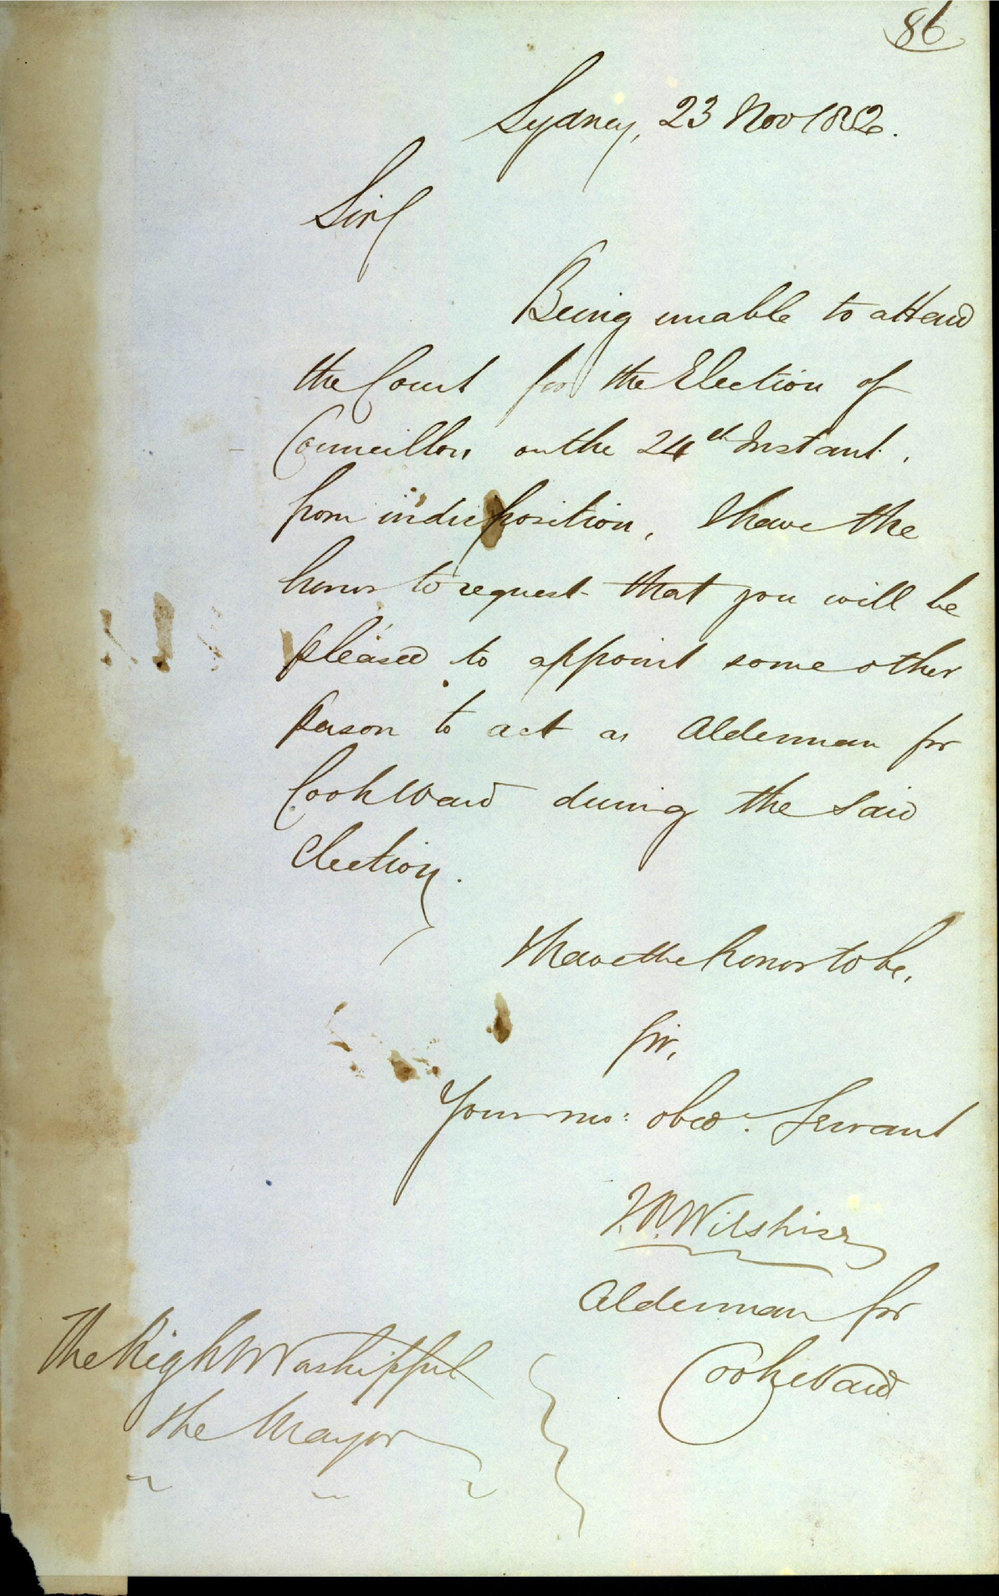 86
Sydney, 23 Nov 1852.
Sir
Being unable to attend
the Court for the Election of
Councillors on the 24th Instant.
from indisposition, I have the
honor to request that you will be
pleased to appoint some other
person to act as Alderman for
Cook Ward during the said
election.
I have the honor to be,
Sir,
Your mo: obed. Servant
J.R. Wilshire
Alderman for
Cooke Ward
The Right Worshipful
the Mayor